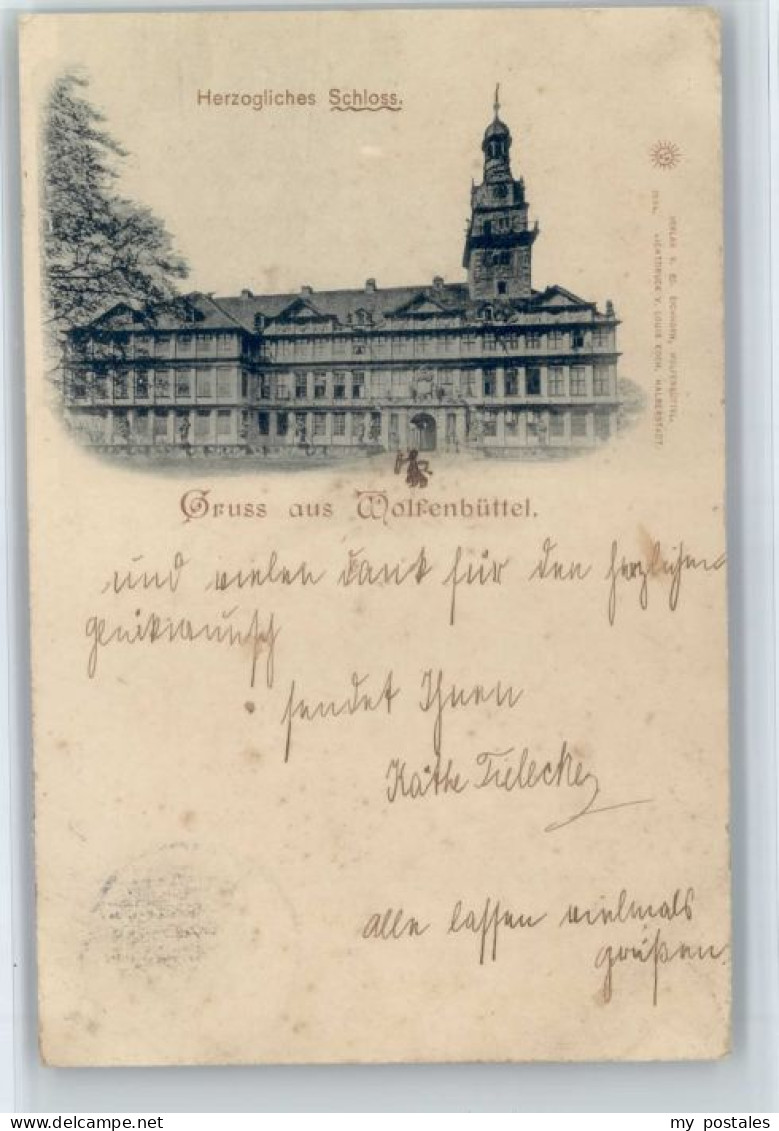 Herzogliches Schloss.
VERLAG V. ED. EICHHORN, WOLFENBÜTTEL.
LICHTDRUCK V. LOUIS KOCH, HALBERSTADT.
Gruss aus Wolfenbüttel.
und vielen Dank für den herzlichen
Glückwunsch
sendet Ihnen
Käthe Tielecke
Alle lassen vielmals
grüßen
my postales